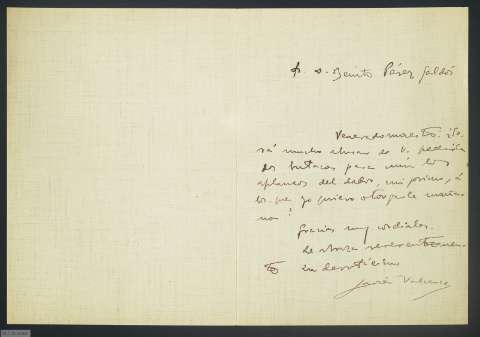 S. D. Benito Pérez Galdós
Venerado maestro:
sá mucho abusar de V. pedirle
dos butacas para unir los
aplausos del sabio, mi primo, á
los que yo quiero otorgarle maña-
na?
Gracias muy cordiales.
Le abraza reverentemen-
te su devotísimo
Javier